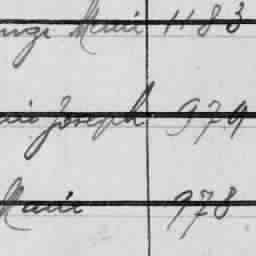 Marie 1183
Joseph 979
Marie 978